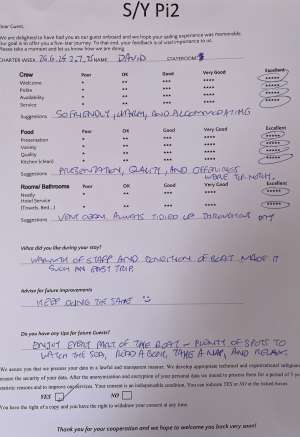 S/Y Pi2
Dear Guest,
We are delighted to have had you as our guest onboard and we hope your sailing experience was memorable.
Our goal is to offer you a five-star journey. To that end, your feedback is of vast importance to us.
Please take a moment and let us know how are we doing
CHARTER WEEK NAME DAVID STATEROOM
Crew Poor OK Good Very Good Excellent
Welcome * ** *** **** *****
Polite * ** *** **** *****
Availability * ** *** **** *****
Service * ** *** **** *****
Suggestions SO FRIENDLY, WARM, AND ACCOMMODATING
Food Poor OK Good Very Good Excellent
Presentation * ** *** **** *****
Variety * ** *** **** *****
Quality * ** *** **** *****
Kitchen (clean) * ** *** **** *****
Suggestions PRESENTATION, QUALITY, AND OFFERINGS
WERE TOP-NOTCH.
Rooms/ Bathrooms Poor OK Good Very Good Excellent
Neatly * ** *** **** *****
Hotel Service * ** *** **** *****
(Towels, Bed...)
Suggestions VERY CLEAN. ALWAYS TIDIED UP THROUGHOUT DAY
What did you like during your stay?
WARMTH OF STAFF AND CONDITION OF BOAT MADE IT
SUCH AN EASY TRIP.
Advise for future improvements
KEEP DOING THE SAME
Do you have any tips for future Guests?
ENJOY EVERY PART OF THE BOAT - PLENTY OF SPOTS TO
WATCH THE SEA, READ A BOOK, TAKE A NAP, AND RELAX.
We assure you that we process your data in a lawful and transparent manner. We develop appropriate technical and organizational
ensure the security of your data. After the anonymization and encryption of your personal data we intend to process them for a period of 5
statistic reasons and to improve our services. Your consent is an indispensable condition. You can indicate YES or NO at the
YES NO
You have the right of a copy and you have the right to withdraw your consent at any time.
Thank you for your cooperation and we hope to welcome you back very soon!